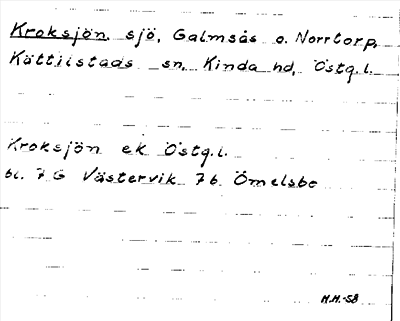 Kroksjön, sjö, Galmsås o. Norrtorp,
Kättilstads sn, Kinda hd, Östg.l.
Kroksjön ek Östg.l.
bl. 7 G Västervik 7b Ömelsbo
H.H.-58